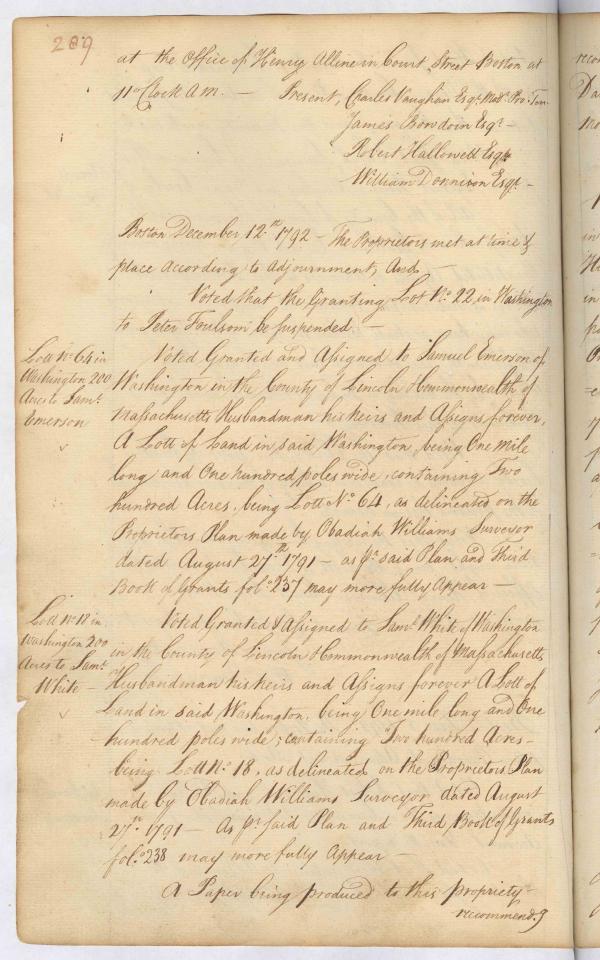 289
at the Office of Henry Alline in Court Street Boston at
11 o'Clock A M. — Present, Charles Vaughan Esqr. Modr. Pro: Tem
James Bowdoin Esqr —
Robert Hallowell Esqr
William Donnison Esqr —
Boston December 12.th 1792 — The Proprietors met at time &
place according to adjournment, And —
Voted that the Granting Lot No. 22 in Washington
to Peter Foulsom be suspended —
Lott No. 64 in
Washington 200
Acres to Saml.
Emerson
Voted Granted and Assigned to Samuel Emerson of
Washington in the County of Lincoln & Commonwealth of
Massachusetts Husbandman his heirs and Assigns forever,
A Lott of Land in said Washington, being One Mile
long and One hundred poles wide, containing Two
hundred Acres, being Lott No. 64, as delineated on the
Proprietors Plan made by Obadiah Williams Surveyor
dated August 27.th 1791 — as pr. said Plan and Third
Book of Grants fol.o 237 may more fully Appear —
Lott No. 18 in
Washington 200
Acres to Saml.
White —
Voted Granted & Assigned to Saml. White of Washington
in the County of Lincoln & Commonwealth of Massachusetts
Husbandman his heirs and Assigns forever A Lott of
Land in said Washington, being One mile long and One
hundred poles wide; containing Two hundred Acres —
being Lott No. 18, as delineated on the Proprietors Plan
made by Obadiah Williams Surveyor dated August
27.th 1791 — As pr. said Plan and Third Book of Grants
fol.o 238 may more fully Appear —
A Paper being produced to this propriety =
recommend.g